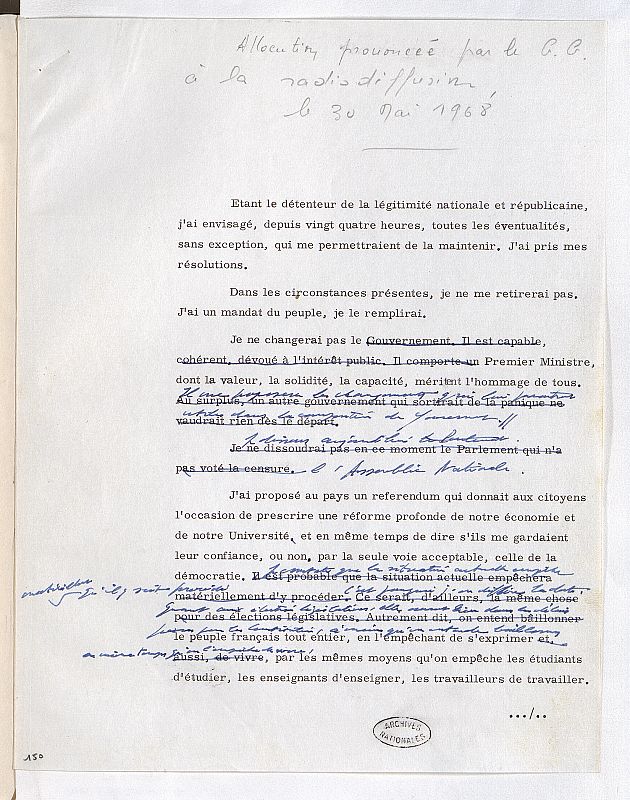 Allocution prononcée par le G. G.
à la radiodiffusion,
le 30 Mai 1968
Etant le détenteur de la légitimité nationale et républicaine,
j'ai envisagé, depuis vingt quatre heures, toutes les éventualités,
sans exception, qui me permettraient de la maintenir. J'ai pris mes
résolutions.
Dans les circonstances présentes, je ne me retirerai pas.
J'ai un mandat du peuple, je le remplirai.
Je ne changerai pas le Gouvernement. Il est capable,
cohérent, dévoué à l'intérêt public. Il comporte un Premier Ministre,
dont la valeur, la solidité, la capacité, méritent l'hommage de tous.
Il me proposera les changements qui lui paraîtront
Au surplus, un autre gouvernement qui sortirait de la panique ne
utiles dans la composition du Gouvernement //
vaudrait rien dès le départ.
Je dissous aujourd'hui
Je ne dissoudrai pas en ce moment le Parlement qui n'a
pas voté la censure. l'Assemblée Nationale.
J'ai proposé au pays un referendum qui donnait aux citoyens
l'occasion de prescrire une réforme profonde de notre économie et
de notre Université, et en même temps de dire s'ils me gardaient
leur confiance, ou non, par la seule voie acceptable, celle de la
Je constate que la situation actuelle empêche
démocratie. Il est probable que la situation actuelle empêchera
matériellement qu'il y soit procédé. C'est pourquoi j'en diffère la date.
matériellement d'y procéder. Ce serait, d'ailleurs, la même chose
Quant aux élections législatives, elles auront lieu dans les délais
pour des élections législatives. Autrement dit, on entend bâillonner
prévus par la Constitution, à moins qu'on entende bâillonner
le peuple français tout entier, en l'empêchant de s'exprimer et,
en même temps qu'on l'empêche de vivre,
aussi, de vivre, par les mêmes moyens qu'on empêche les étudiants
d'étudier, les enseignants d'enseigner, les travailleurs de travailler.
.../..
ARCHIVES
NATIONALES
150